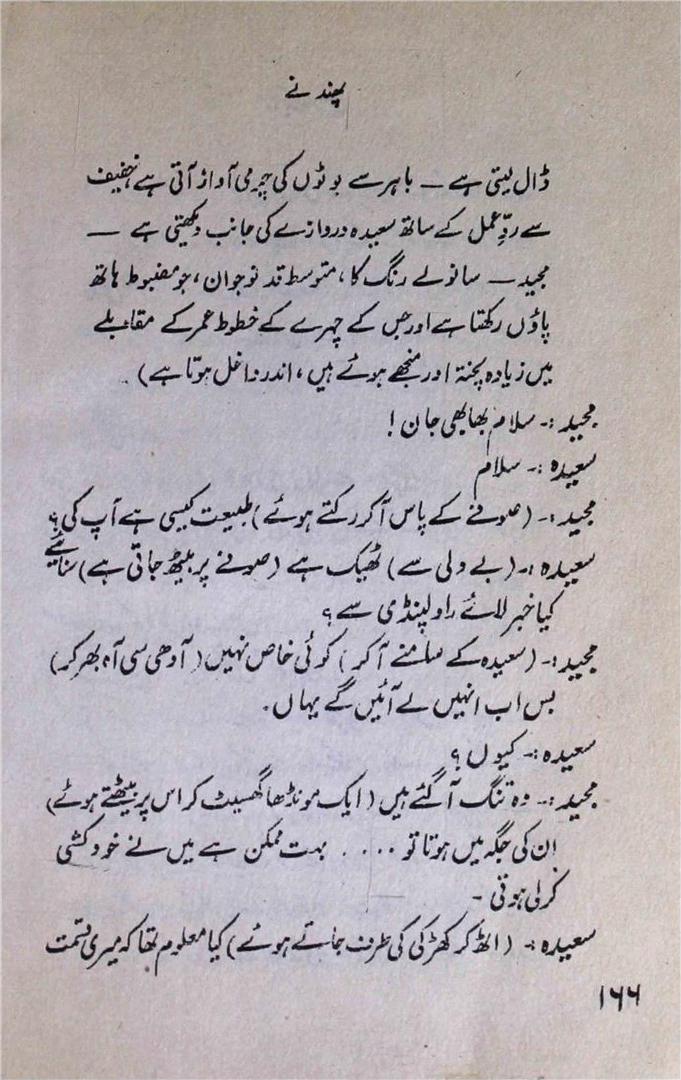 پھندنے
ڈال لیتی ہے — باہر سے بوٹوں کی چرمی آواز آتی ہے خفیف
سے ردِّ عمل کے ساتھ سعیدہ دروازے کی جانب دیکھتی ہے —
مجید — سانولے رنگ کا، متوسط قد نوجوان، جو مضبوط ہاتھ
پاؤں رکھتا ہے اور جس کے چہرے کے خطوط عمر کے مقابلے
میں زیادہ پختہ اور منجھے ہوئے ہیں، اندر داخل ہوتا ہے)
مجید :- سلام بھابھی جان !
سعیدہ :- سلام
مجید :- (صوفے کے پاس آکر رکتے ہوئے) طبیعت کیسی ہے آپ کی؟
سعیدہ :- (بے دلی سے) ٹھیک ہے (صوفے پر بیٹھ جاتی ہے) سنائیے
کیا خبر لائے راولپنڈی سے؟
مجید :- (سعیدہ کے سامنے آکر) کوئی خاص نہیں (آدھی سی آہ بھر کر)
بس اب انہیں لے آئیں گے یہاں۔
سعیدہ :- کیوں؟
مجید :- وہ تنگ آگئے ہیں (ایک مونڈھا گھسیٹ کر اس پر بیٹھتے ہوئے)
ان کی جگہ میں ہوتا تو .... بہت ممکن ہے میں نے خودکشی
کرلی ہوتی -
سعیدہ :- (اٹھ کر کھڑکی کی طرف جاتے ہوئے) کیا معلوم تھا کہ میری قسمت
۱۶۶